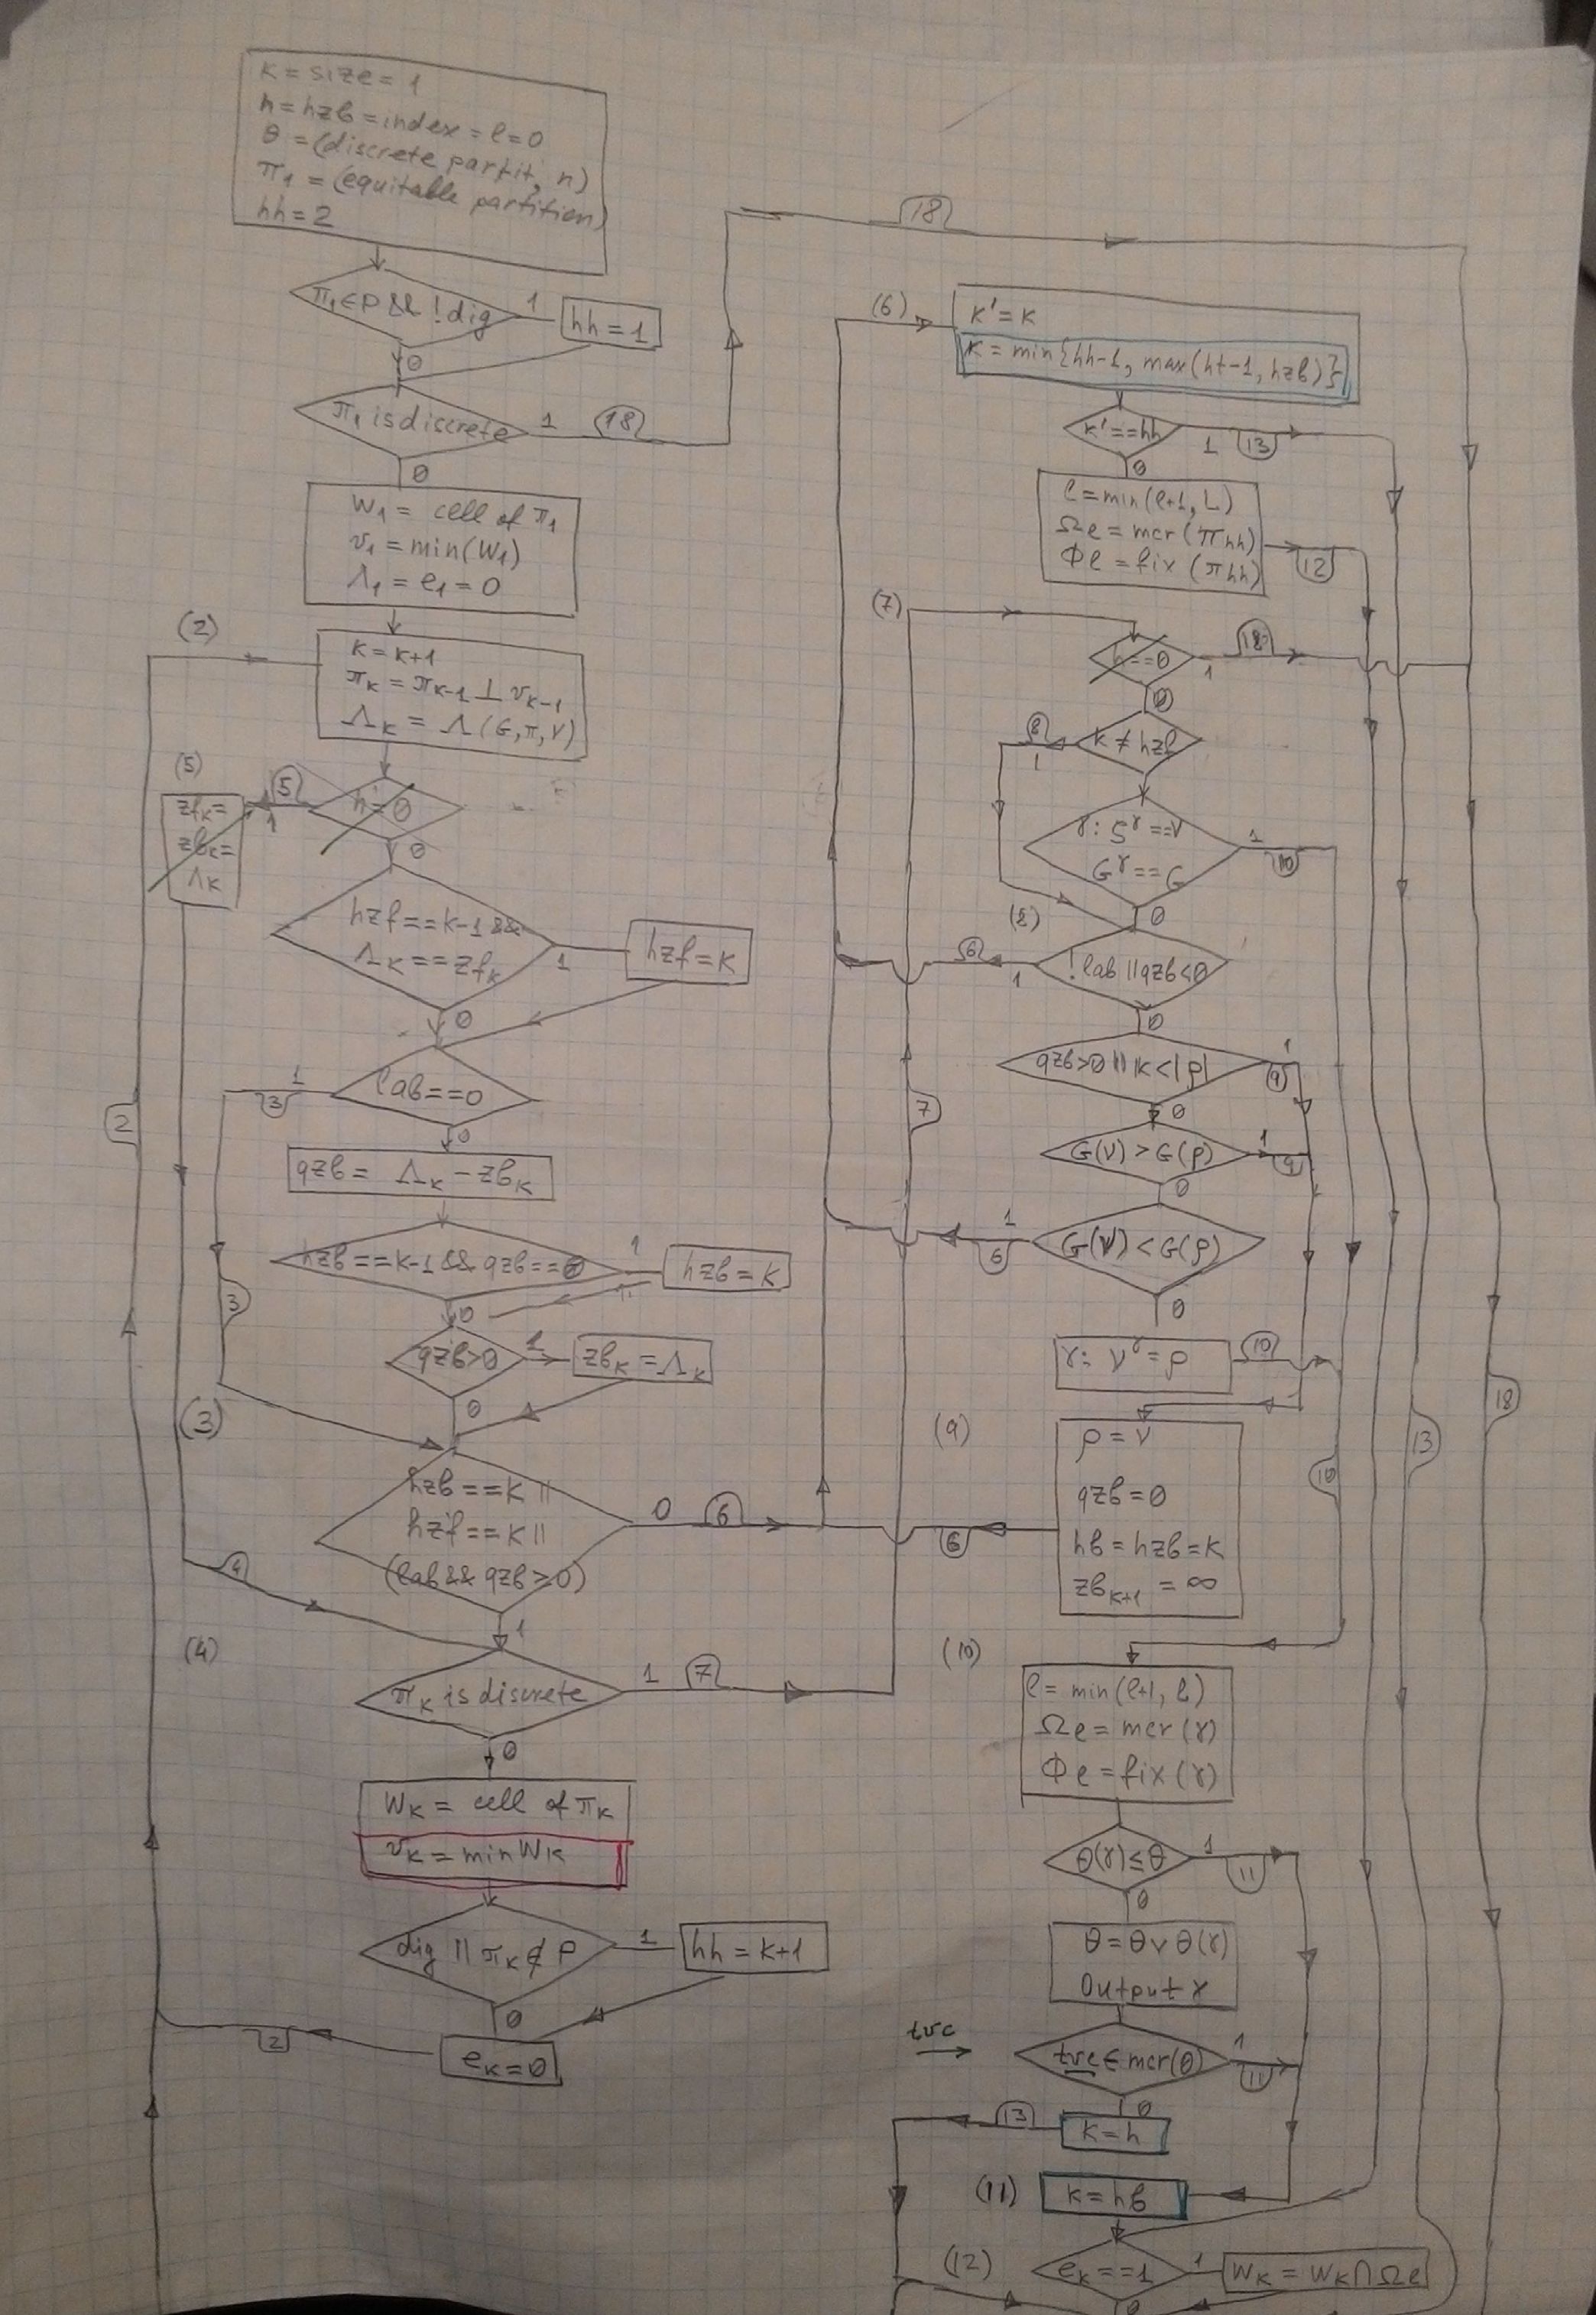 K = size = 1
h = hzb = index = l = 0
θ = (discrete partit, n)
π1 = (equitable partition)
hh = 2
π1 ∈ P && !dig
1
hh = 1
0
π1 is discrete
1
(18)
0
W1 = cell of π1
v1 = min(W1)
Λ1 = e1 = 0
(2)
K = K+1
πK = πK-1 ⊥ vK-1
ΛK = Λ(G, π, V)
(5)
zfK =
zbK =
ΛK
(5)
1
h = 0
0
hzf == K-1 &&
ΛK == zfK
1
hzf = K
0
lab == 0
1
3
0
qzb = ΛK - zbK
hzb == K-1 && qzb == 0
1
hzb = K
0
qzb > 0
1
zbK = ΛK
0
2
3
(3)
hzb == K ||
hzf == K ||
(lab && qzb ≥ 0)
0
6
1
4
(4)
πK is discrete
1
7
0
WK = cell of πK
vK = min WK
dig || πK ∉ P
1
hh = K+1
0
eK = 0
2
18
(6)
K' = K
K = min{hh-1, max(ht-1, hzb)}
K' == hh
1
13
0
l = min(l+1, L)
Ωl = mcr(πhh)
Φl = fix(πhh)
12
(7)
h == 0
18
1
0
8
1
K ≠ hzf
γ: ςγ == V
Gγ == G
1
10
0
(8)
!lab || qzb < 0
6
1
0
qzb > 0 || K < |ρ|
1
9
0
7
G(V) > G(ρ)
1
9
0
G(V) < G(ρ)
1
6
0
γ: Vγ = ρ
10
18
13
10
(9)
ρ = V
qzb = 0
hb = hzb = K
zbK+1 = ∞
6
(10)
l = min(l+1, L)
Ωl = mcr(γ)
Φl = fix(γ)
θ(γ) ≤ θ
1
11
0
θ = θ ∨ θ(γ)
Output γ
tvc
tvc ∈ mcr(θ)
1
11
0
13
K = h
(11)
K = hb
(12)
eK == 1
1
WK = WK ∩ Ωl
0